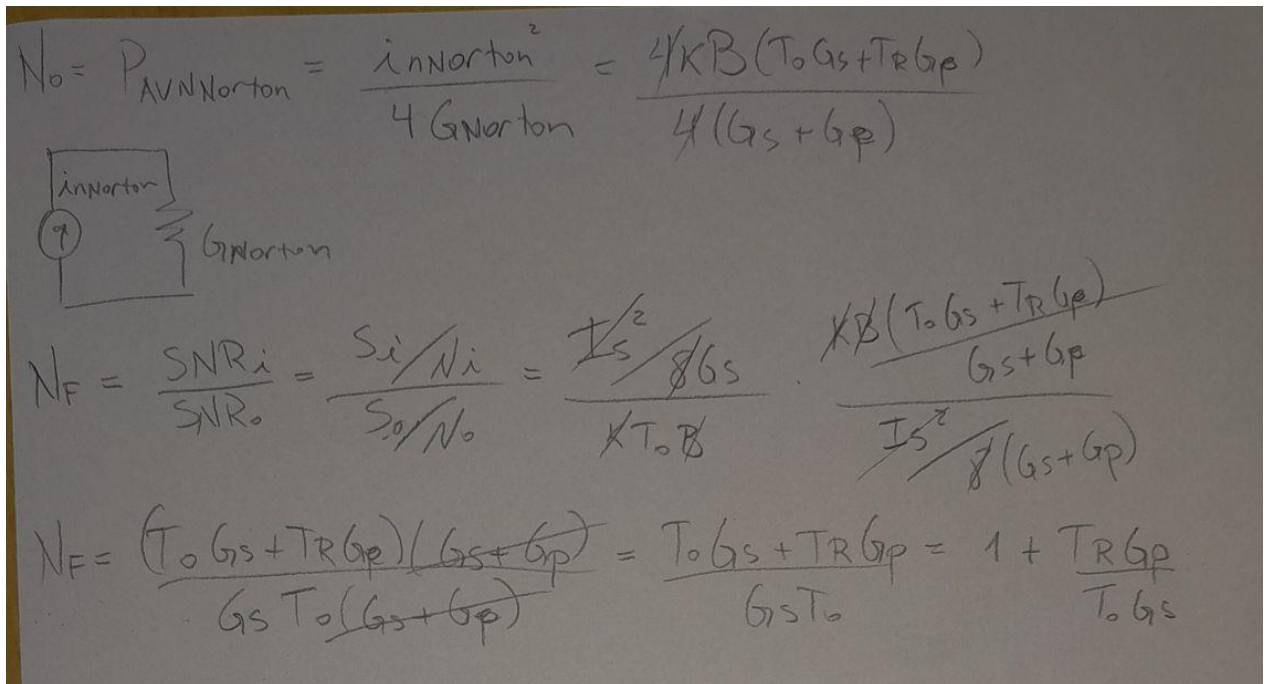 No = PAVNNorton = inNorton² / 4 GNorton = 4KB(ToGs+TRGp) / 4(Gs+Gp)
inNorton
GNorton
NF = SNRi / SNRo = Si/Ni / So/No = Is²/8Gs / KToB · KB(ToGs+TRGp) / Gs+Gp / Is²/8(Gs+Gp)
NF = (ToGs+TRGp)(Gs+Gp) / GsTo(Gs+Gp) = ToGs+TRGp / GsTo = 1 + TRGp / ToGs